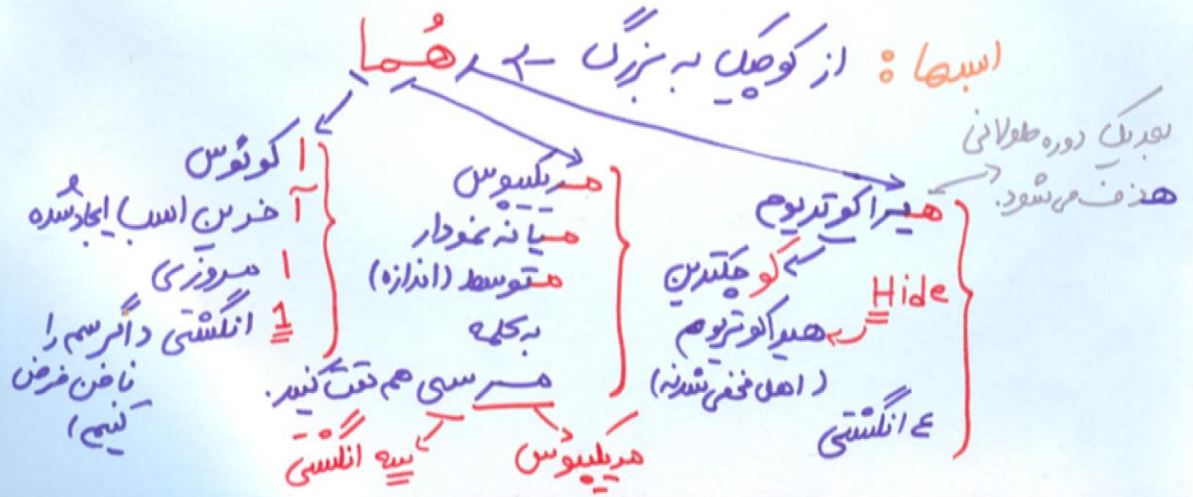 اسبها : از کوچک به بزرگ → هُما
بعد یک دوره طولانی
هذف می‌شود.
هیراکوتریوم
کوچکترین
Hide
هیراکوتریوم
(اهل مخفی شدنه)
۴ انگشتی
مریکیپوس
میانه نمودار
متوسط (اندازه)
به کلمه
مرسی هم دقت کنید.
مریکیپوس
سه انگشتی
اکوئوس
آخرین اسب ایجاد شده
امروزی
1 انگشتی (اگر سم را
ناخن فرض
کنیم)